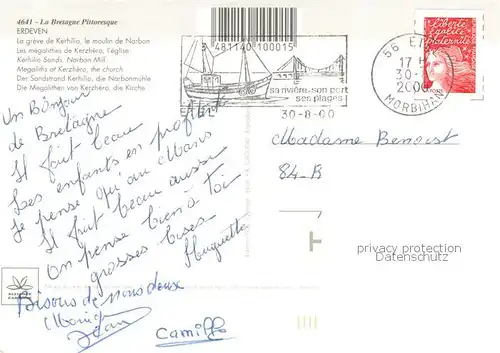 4641 - La Bretagne Pittoresque
ERDEVEN
La grève de Kerhilio, le moulin de Narbon
Les mégalithes de Kerzhéro, l'église
Kerhilio Sands, Narbon Mill
Megaliths at Kerzhéro, the church
Der Sandstrand Kerhilio, die Narbonmühle
Die Megalithen von Kerzhéro, die Kirche
3 481140 100015
sa rivière, son port
ses plages
30-8-00
56 ET
17 H
30-
2000
MORBIHAN
Liberté
Égalité
Fraternité
Un Bonjour
de Bretagne
Il fait beau
Les enfants en profitent
Je pense qu'au Mans
Il fait beau aussi
On pense bien à toi
grosses bises
Huguette
Bisous de nous deux
Monique
Jean
Camille
Madame Benoist
84-B
privacy protection
Datenschutz